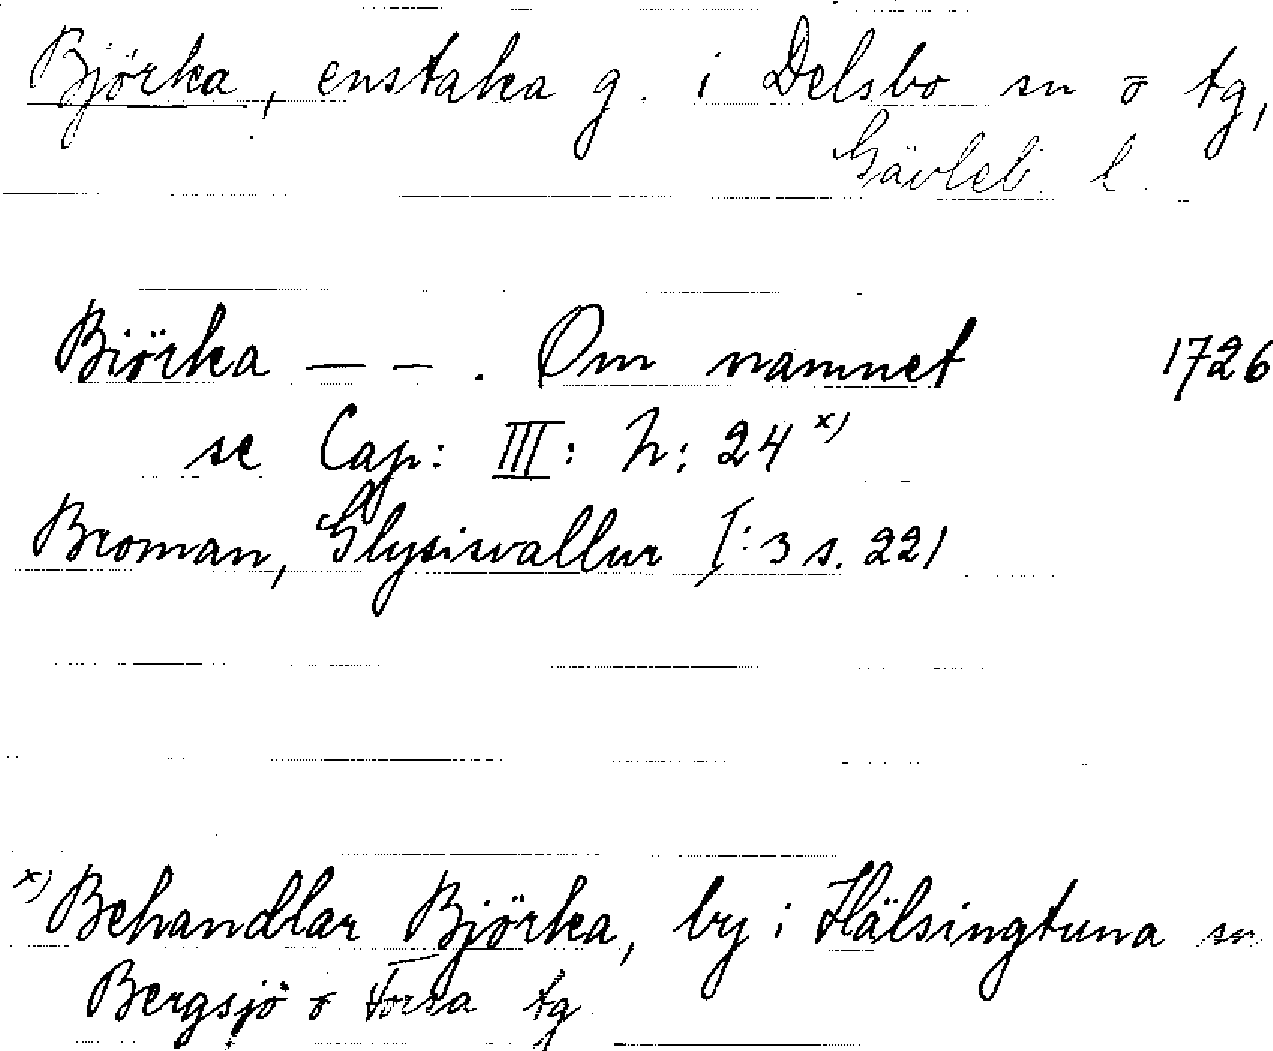 Björka, enstaka g. i Delsbo sn o tg,
Gävleb. l.
Biörka — — . Om namnet 1726
se Cap: III: N: 24 x)
Broman, Glysisvallur I: 3 s. 221
x) Behandlar Björka, by i Hälsingtuna sn
Bergsjö o Forsa tg